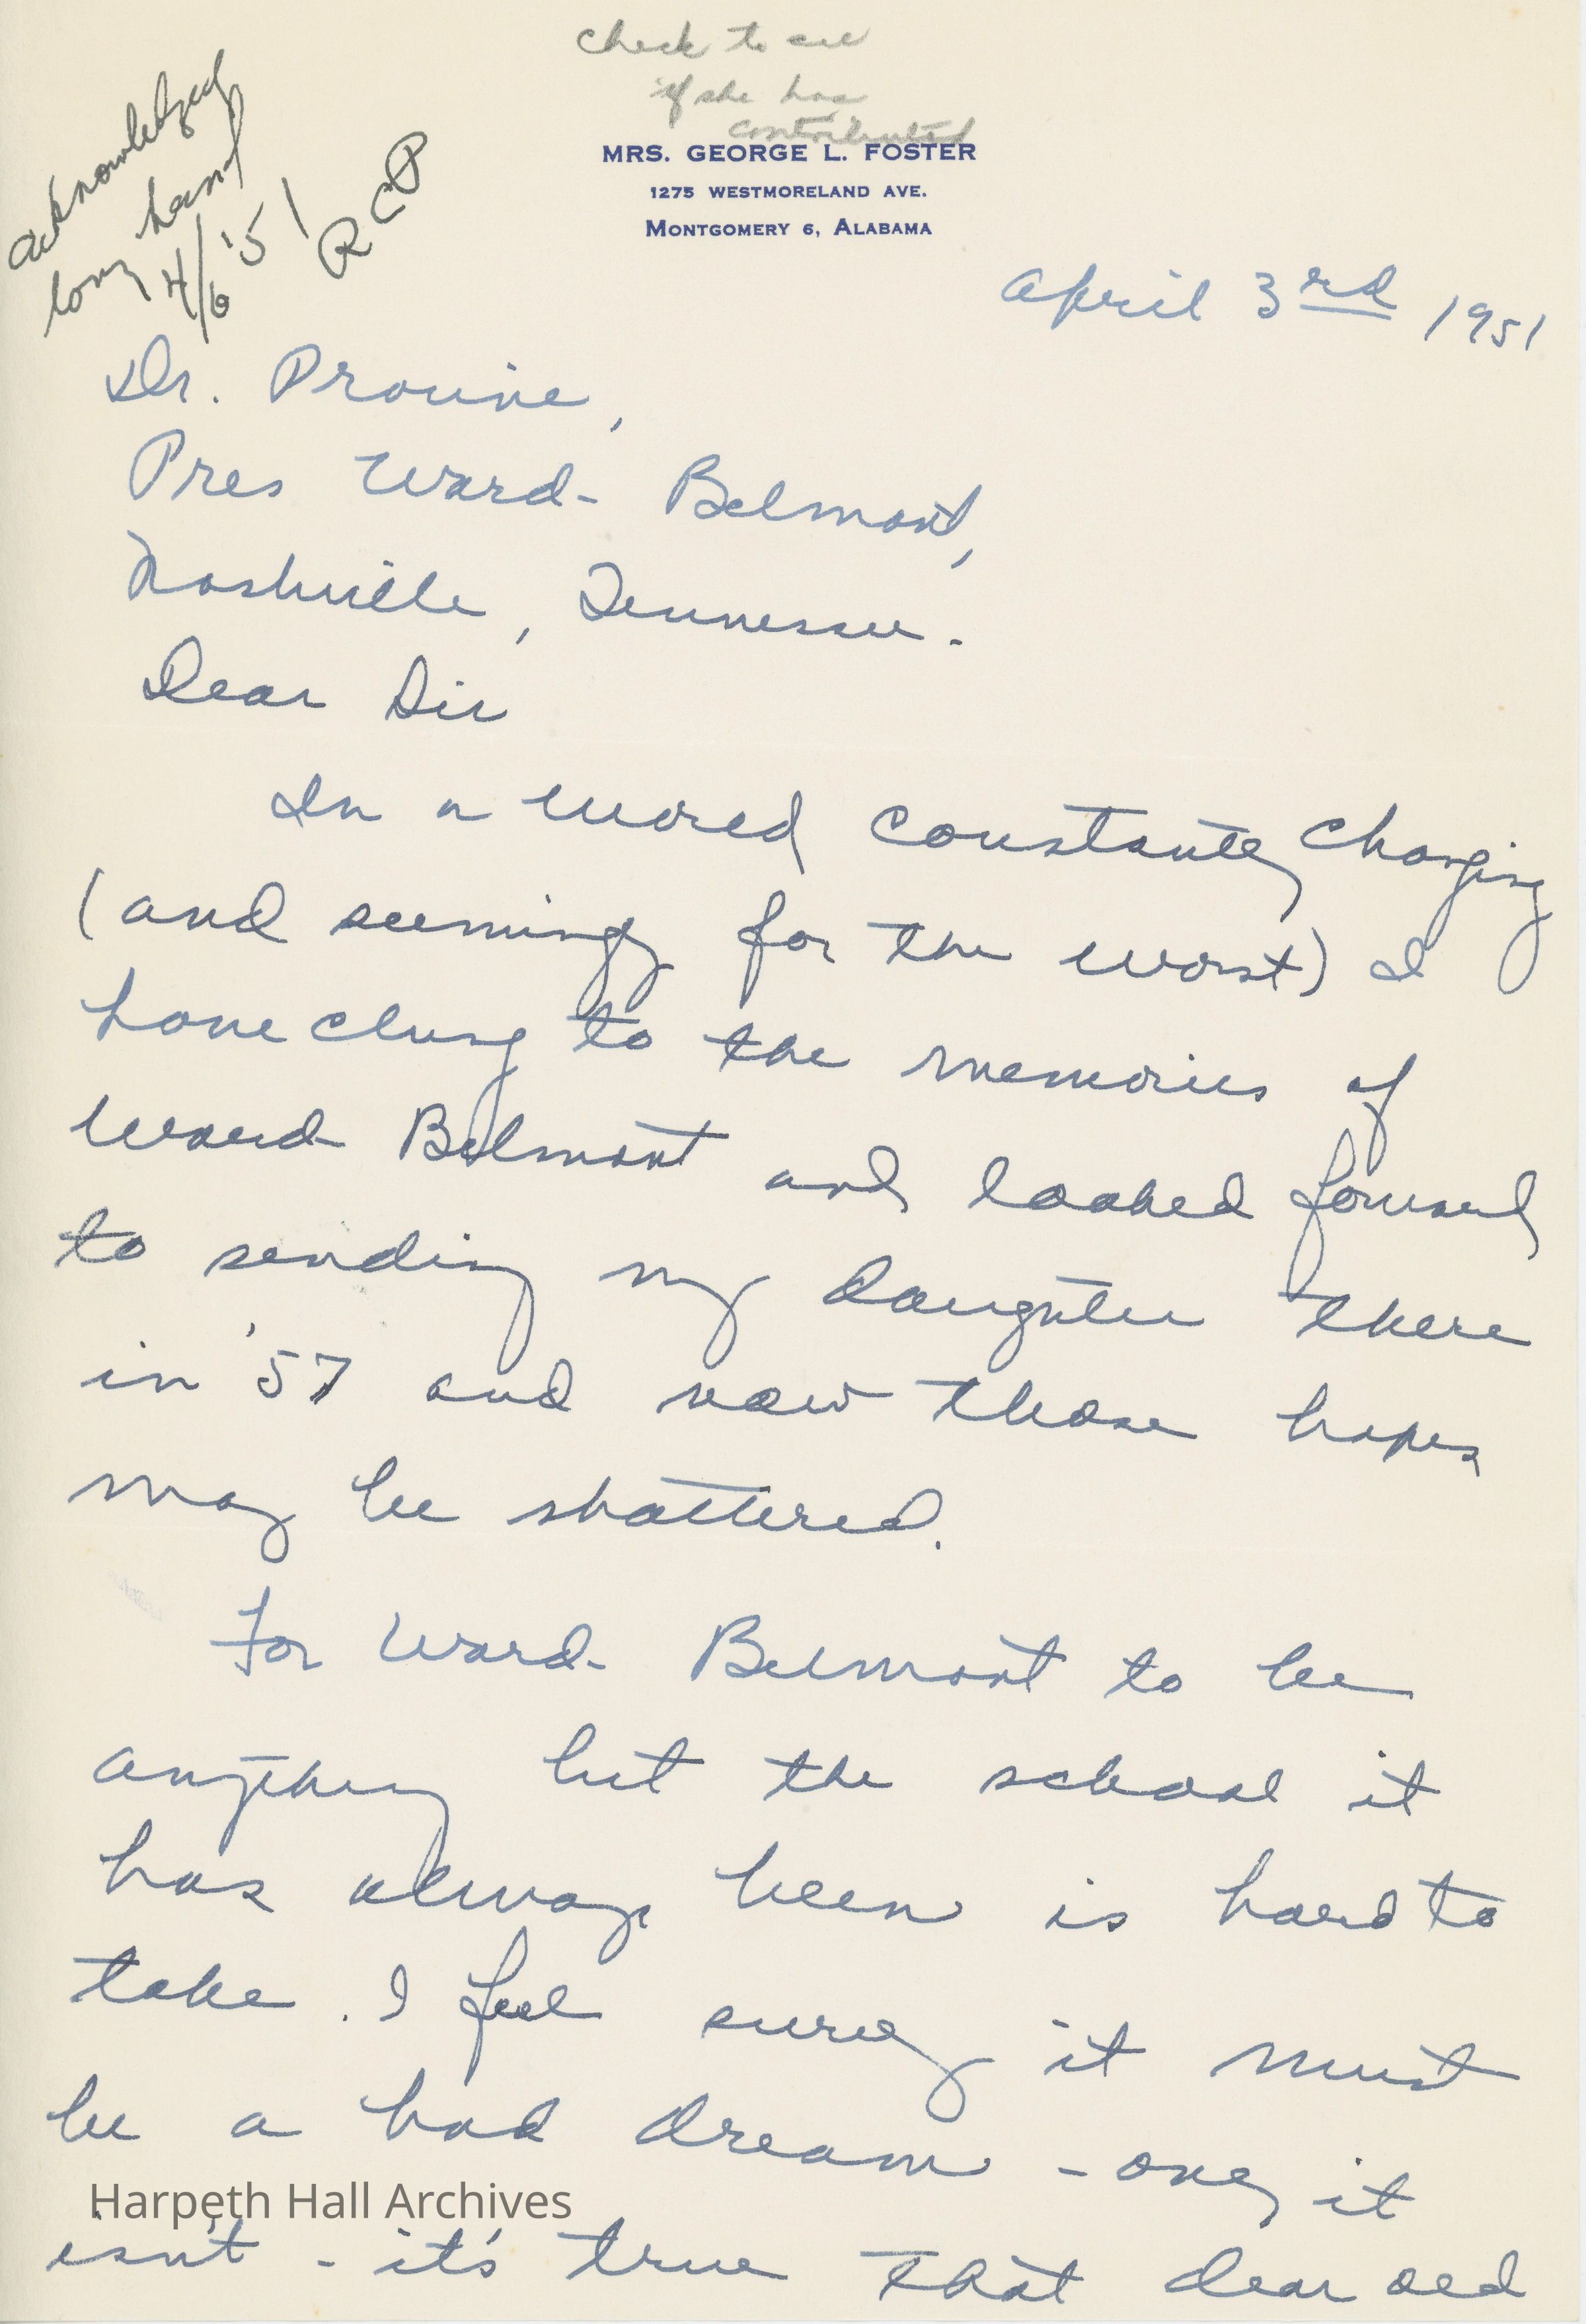 check to see
if she has
contributed
acknowledged
long hand
4/6 '51
RCP
MRS. GEORGE L. FOSTER
1275 WESTMORELAND AVE.
MONTGOMERY 6, ALABAMA
April 3rd 1951
Dr. Provine,
Pres Ward-Belmont,
Nashville, Tennessee.
Dear Sir
In a world constantly changing
(and seemingly for the worst) I
have clung to the memories of
Ward Belmont and looked forward
to sending my daughter there
in '57 and now those hopes
may be shattered.
For Ward-Belmont to be
anything but the school it
has always been is hard to
take. I feel surely it must
be a bad dream - only it
Harpeth Hall Archives
isn't - it's true that dear old